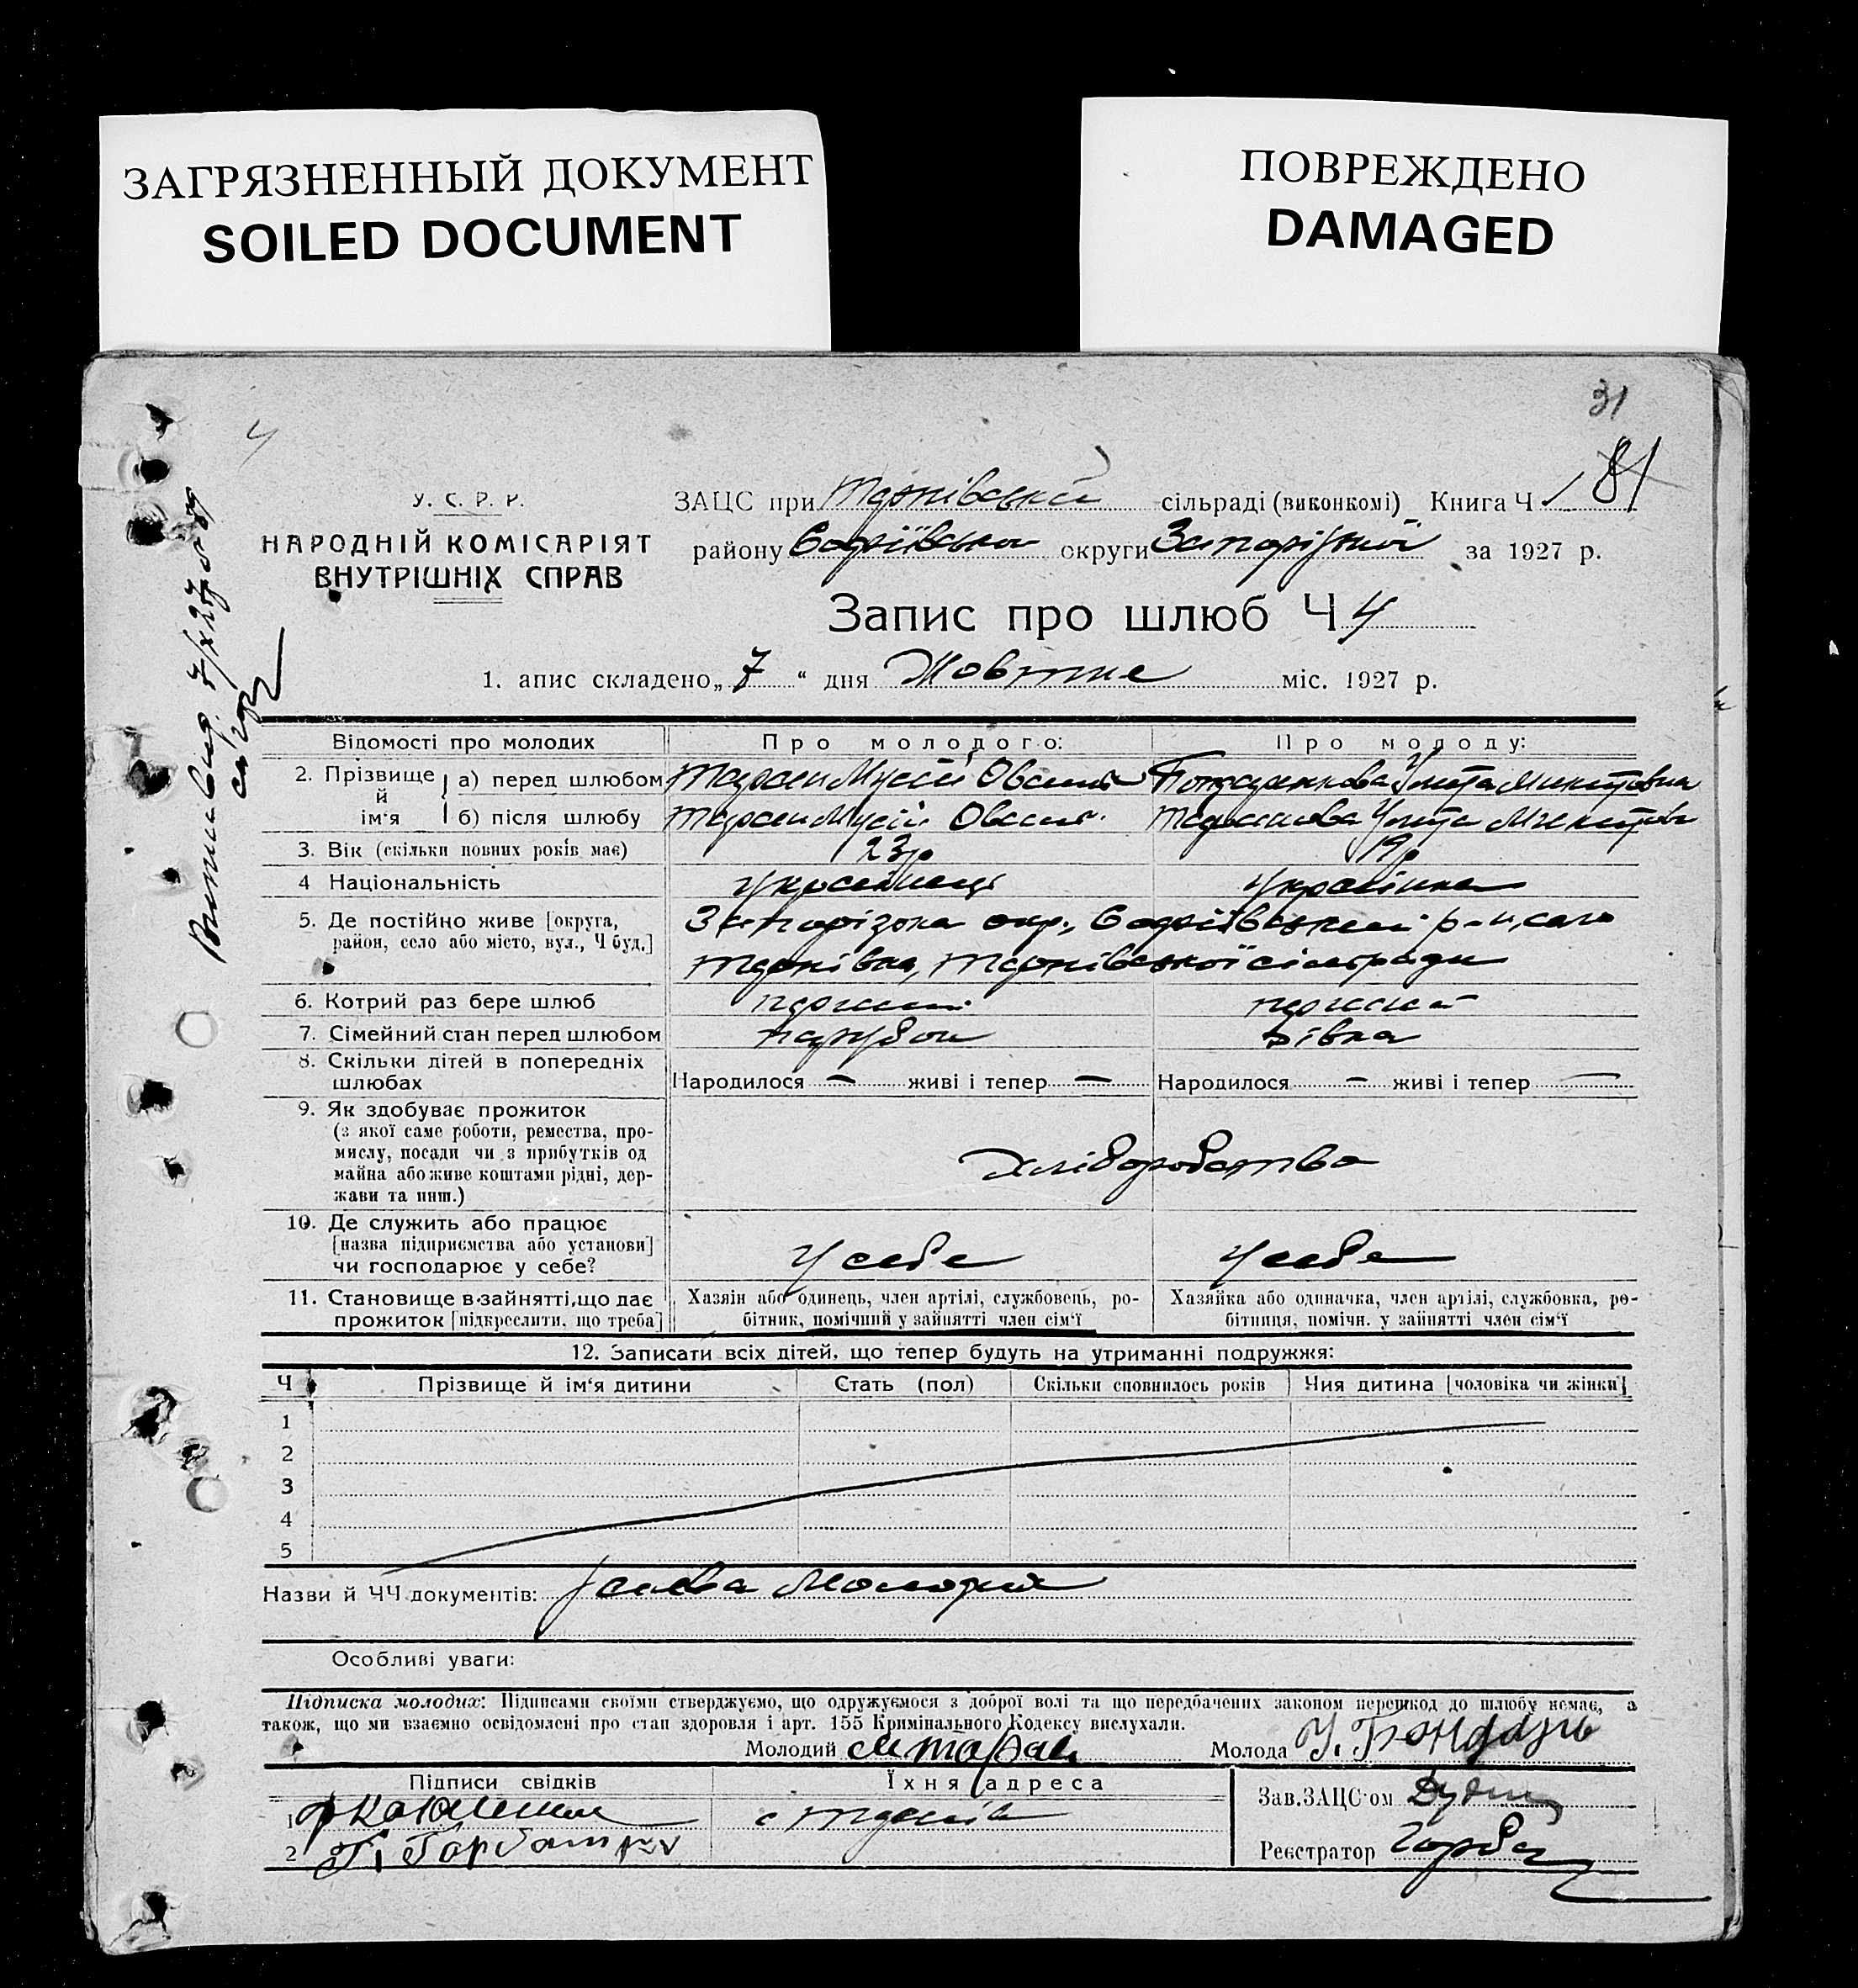 ЗАГРЯЗНЕННЫЙ ДОКУМЕНТ
SOILED DOCUMENT
ПОВРЕЖДЕНО
DAMAGED
31
4
81
У. С. Р. Р.
НАРОДНІЙ КОМІСАРІЯТ
ВНУТРІШНІХ СПРАВ
ЗАЦС при Тернівській сільраді (виконкомі) Книга Ч 1
району округи Запорізької за 1927 р.
Запис про шлюб Ч 4
1. апис складено „ 7 “ дня Жовтня міс. 1927 р.
Відомості про молодих Про молодого: Про молоду:
2. Прізвище й ім‘я а) перед шлюбом Таран Мусій Овсій
б) після шлюбу Таран Мусій Овсій.
3. Вік (скільки повних років має) 23р 19р
4 Національність Українець Українка
5. Де постійно живе [округа, район, село або місто, вул., Ч буд.] Запорізька окр., р-н, село
Тернівка, Тернівської сільради
6. Котрий раз бере шлюб перший перший
7. Сімейний стан перед шлюбом парубок дівка
8. Скільки дітей в попередніх шлюбах Народилося — живі і тепер — Народилося — живі і тепер —
9. Як здобуває прожиток
(з якої саме роботи, ремества, про-
мислу, посади чи з прибутків од
майна або живе коштами рідні, дер-
жави та инш.)
Хліборобство
10. Де служить або працює
[назва підприємства або установи]
чи господарює у себе?
У себе У себе
11. Становище в зайнятті, що дає
прожиток [підкреслити, що треба]
Хазяїн або одинець, член артілі, службовець, ро-
бітник, помічний у зайнятті член сім‘ї
Хазяйка або одиначка, член артілі, службовка, ро-
бітниця, помічн. у зайнятті член сім‘ї
12. Записати всіх дітей, що тепер будуть на утриманні подружжя:
Ч Прізвище й ім‘я дитини Стать (пол) Скільки сповнилось років Чия дитина [чоловіка чи жінки]
1
2
3
4
5
Назви й ЧЧ документів: Молодих
Особливі уваги:
Підписка молодих: Підписами своїми стверджуємо, що одружуємося з доброї волі та що передбачених законом перешкод до шлюбу немає, а
також, що ми взаємно освідомлені про стан здоровля і арт. 155 Кримінального Кодексу вислухали.
Молодий М Таран Молода У. Бондарь
Підписи свідків Їхня адреса
1
2
Зав. ЗАЦС‘ом
Реєстратор